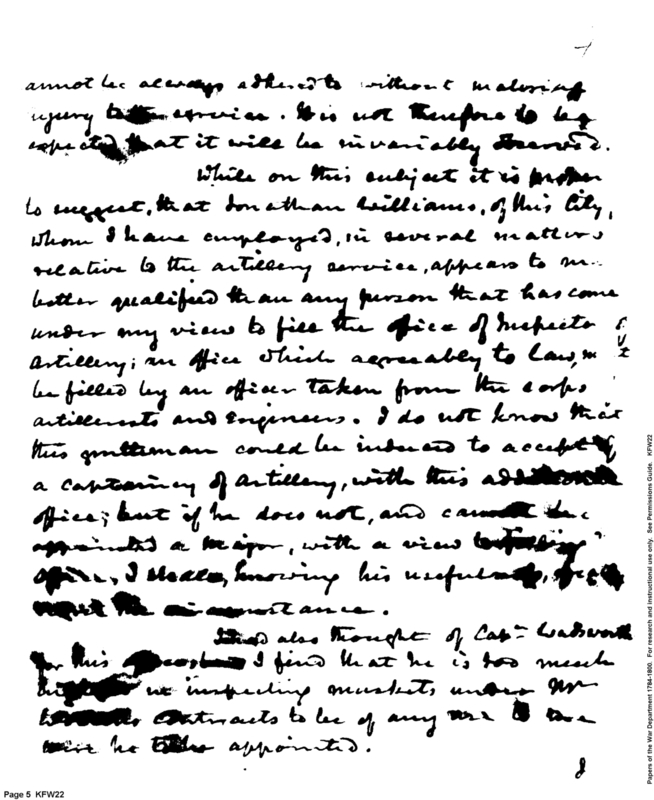 annot be always adhered to without material
injury to the service. It is not therefore to be
expected that it will be invariably observed.
While on this subject it is proper
to suggest, that Jonathan Williams, of this City,
whom I have employed, in several matters
relative to the artillery service, appears to m
better qualified than any person that has come
under my view to fill the office of Inspecto of
Artillery; an office which agreeably to Law, m t
be filled by an officer taken from the corps
artillerists and Engineers. I do not know that
this gentleman could be induced to accept of
a captaincy of Artillery, with this additional
office; but if he does not, and cannot be
appointed a Major, with a view to
office, I shall, knowing his usefulness,
regret the circumstance.
I had also thought of Capn Wadsworth
for this I find that he is too much
in inspecting muskets under Mr
contracts to be of any use to
were he to be appointed.
I
Page 5 KFW22
Papers of the War Department 1784-1800. For research and instructional use only. See Permissions Guide. KFW22